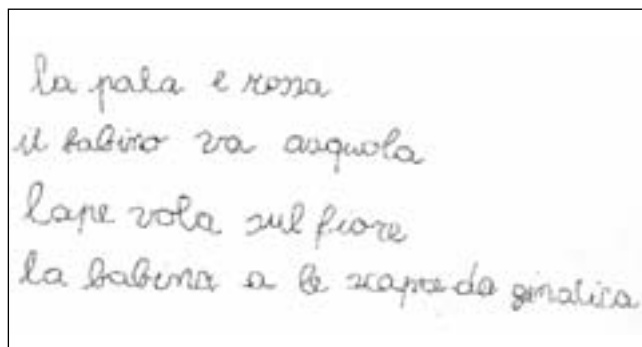 la pala e rossa
il babino va asquola
lape vola sul fiore
la babina a le scapre da ginatica